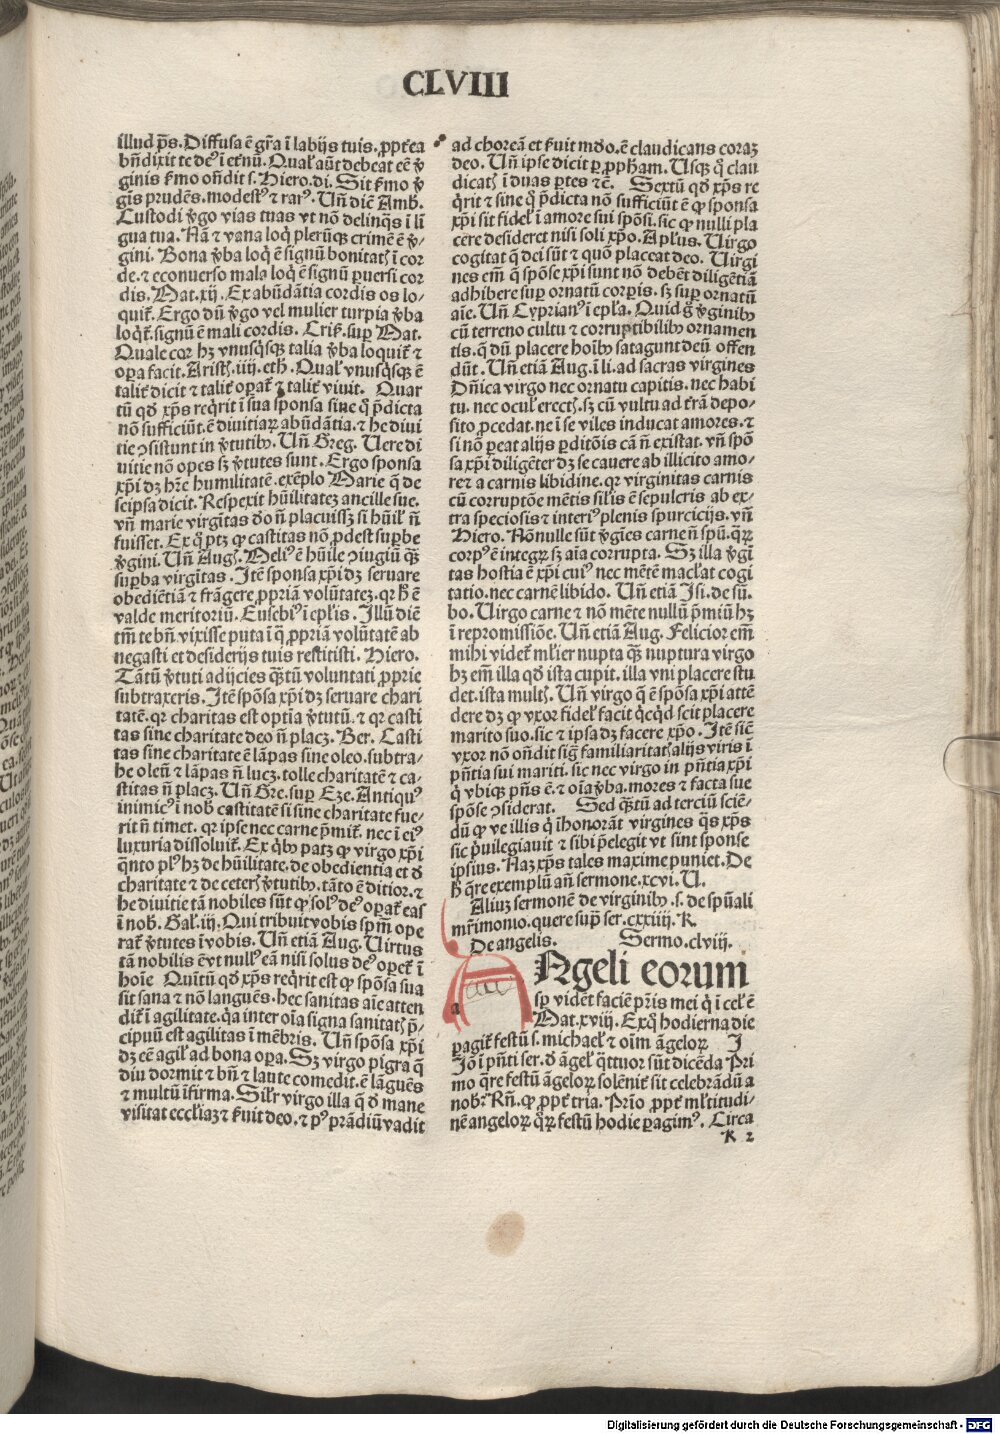 CLVIII
illud p̄s. Diffusa ē gr̄a ī labijs tuis. ꝓpt̄ea
bn̄dixit te deꝰ ī et̄nū. Qual' aūt debeat eē v̄
ginis ẜmo oñdit s. Hiero. di. Sit ẜmo v̄
gis prudēs. modestꝰ ⁊ rarꝰ. Un̄ diē Amb.
Custodi v̄go vias tuas vt nō delinq̄s ī li
gua tua. Nā ⁊ vana loq̄ plerūqꝫ crimē ē v̄-
gini. Bona v̄ba loq̄ ē signū bonitatꝭ ī cor
de. ⁊ econuerso mala loq̄ ē signū ꝑuersi cor
dis. Mat. xij. Ex abūdātia cordis os lo-
quit̄. Ergo dū v̄go vel mulier turpia v̄ba
loq̄t̄. signū ē mali cordis. Criẜ. suꝑ Mat.
Quale cor hꝫ vnusq̄sqꝫ talia v̄ba loquit̄ ⁊
oꝑa facit. Aristꝭ. iiij. eth. Qual' vnusq̄sqꝫ ē
talit̄ dicit ⁊ talit̄ oꝑat̄ ⁊ talit̄ viuit. Quar
tū qd̄ xp̄s req̄rit ī sua sponsa sine q̄ p̄dicta
nō sufficiūt. ē diuitiaꝝ abūdātia. ⁊ he diui
tie ꝯsistunt in v̄tutibꝰ. Un̄ Greg. Uere di
uitie nō opes sꝫ v̄tutes sunt. Ergo sponsa
xp̄i dꝫ hr̄e humilitatē. exēplo Marie q̄ de
seipsa dicit. Respexit hūilitateꝫ ancille sue.
vn̄ marie virgītas do n̄ placuissꝫ si hūil' n̄
fuisset. Ex q̄ ptꝫ ꝙ castitas nō ꝓdest suꝑbe
v̄gini. Un̄ Augꝭ. Melꝰ ē hūile ꝯiugiū q̄ꝫ
suꝑba virgītas. Itē sponsa xp̄i dꝫ seruare
obediētiā ⁊ frāgere ꝓpriā volūtateꝫ. qr h̄ ē
valde meritoriū. Eusebiꝰ ī ep̄lis. Illū diē
tm̄ te bn̄ vixisse puta ī q̄ ꝓpriā volūtatē ab
negasti et desiderijs tuis restitisti. Hiero.
Tātū v̄tuti adijcies q̄ꝫtū voluntati ꝓprie
subtraxeris. Itē spōsa xp̄i dꝫ seruare chari
tatē. qr charitas est optīa v̄tutū. ⁊ qr casti
tas sine charitate deo n̄ placꝫ. Ber. Casti
tas sine charitate ē lāpas sine oleo. subtra-
he oleū ⁊ lāpas n̄ lucꝫ. tolle charitatē ⁊ ca-
stitas n̄ placꝫ. Un̄ Gre. suꝑ Eze. Antiquꝰ
inimicꝰ ī nob̄ castitatē si sine charitate fue-
rit n̄ timet. qr ipse nec carne p̄mit̄. nec ī eiꝰ
luxuria dissoluit̄. Ex q̄bꝰ patꝫ ꝙ virgo xp̄i
q̄nto plꝰ hꝫ de hūilitate. de obedientia et d̄
charitate ⁊ de ceterꝭ v̄tutibꝰ. tāto ē ditior. ⁊
he diuitie tā nobiles sūt ꝙ solꝰ deꝰ oꝑat̄ eas
ī nob̄. Gal'. iij. Qui tribuit vobis sp̄m ope
rat̄ v̄tutes ī vobis. Un̄ etiā Aug. Uirtus
tā nobilis ē vt nullꝰ eā nisi solus deꝰ oꝑet̄ ī
hoīe Quītū qd̄ xp̄s req̄rit est ꝙ spōsa sua
sit sana ⁊ nō languēs. hec sanitas aīe atten
dit̄ ī agilitate. q̄a inter oīa signa sanitatꝭ p̄-
cipuū est agilitas ī mēbris. Un̄ spōsa xp̄i
dꝫ eē agil' ad bona oꝑa. Sꝫ virgo pigra q̄
diu dormit ⁊ bn̄ ⁊ laute comedit. ē lāguēs
⁊ multū īfirma. Sil'r virgo illa q̄ d̄ mane
visitat eccl'iaꝫ ⁊ ẜuit deo. ⁊ pꝰ prādiū vadit
ad choreā et ẜuit mūdo. ē claudicans coraꝫ
deo. Un̄ ipse dicit ꝑ ꝓpḣam. Usqꝫ q̄ clau
dicatꝭ ī duas ꝑtes ⁊c̄. Sextū qd̄ xp̄s re
q̄rit ⁊ sine q̄ p̄dicta nō sufficiūt ē ꝙ sponsa
xp̄i sit fidel' ī amore sui spōsi. sic ꝙ nulli pla
cere desideret nisi soli xp̄o. Aplus. Uirgo
cogitat q̄ dei sūt ⁊ quō placeat deo. Uirgi
nes em̄ q̄ spōse xp̄i sunt nō debēt diligētiā
adhibere suꝑ ornatū corꝑis. sꝫ suꝑ ornatū
aīe. Un̄ Cyprianꝰ ī ep̄la. Quid g̊ v̄ginibꝰ
cū terreno cultu ⁊ corruptibilibꝰ ornamen
tis. q̄ dū placere hoībꝰ satagunt deū offen
dūt. Un̄ etiā Aug. ī li. ad sacras virgines
Dn̄ica virgo nec ornatu capitis. nec habi
tu. nec ocul' erectꝭ. sꝫ cū vultu ad t̄rā depo-
sito ꝓcedat. ne ī se viles inducat amores. ⁊
si nō ꝑeat alijs ꝑditōis cā n̄ existat. vn̄ spō
sa xp̄i diligēter dꝫ se cauere ab illicito amo-
re ⁊ a carnis libidine. qr virginitas carnis
cū corruptōe mētis sil'is ē sepulcris ab ex-
tra speciosis ⁊ interiꝰ plenis spurcicijs. vn̄
Hiero. Nōnulle sūt v̄gīes carne n̄ spū. q̄ꝝ
corpꝰ ē integꝝ sꝫ aīa corrupta. Sꝫ illa v̄gī
tas hostia ē xp̄i cuiꝰ nec mētē macl'at cogi
tatio. nec carnē libido. Un̄ etiā Isi. de sū.
bo. Uirgo carne ⁊ nō mēte nullū p̄miū hꝫ
ī repromissiōe. Un̄ etiā Aug. Felicior em̄
mihi videt̄ ml'ier nupta q̄ꝫ nuptura virgo
hꝫ em̄ illa qd̄ ista cupit. illa vni placere stu
det. ista multꝭ. Un̄ virgo q̄ ē spōsa xp̄i attē
dere dꝫ ꝙ vxor fidel' facit q̄cq̄d scit placere
marito suo. sic ⁊ ipsa dꝫ facere xp̄o. Itē sic̄
vxor nō oñdit sig̊ familiaritatꝭ alijs viris ī
pn̄tia sui mariti. sic nec virgo in pn̄tia xp̄i
q̄ vbiqꝫ pn̄s ē. ⁊ oīa v̄ba. mores ⁊ facta sue
spōse ꝯsiderat. Sed q̄ꝫtū ad terciū sciē-
dū ꝙ ve illis q̄ īhonorāt virgines q̄s xp̄s
sic p̄uilegiauit ⁊ sibi p̄elegit vt sint sponse
ipsius. Naꝫ xp̄s tales maxime puniet. De
h̄ q̄re exemplū añ sermone. xcvi. U.
Aliuꝫ sermonē de virginibꝰ. s. de spūali
mr̄imonio. quere suꝑ ser. cxxiiij. K.
De angelis. Sermo. clviii.
ANgeli eorum
a
sp̄ vidēt faciē pr̄is mei q̄ ī cel' ē
Mat. xviij. Ex q̊ hodierna die
ꝑagit̄ festū s. michael' ⁊ oīm āgeloꝝ I
Jō ī pn̄ti ser. d̄ āgel' q̄ttuor sūt dicēda Pri
mo q̄re festū āgeloꝝ solēnit̄ sit celebrādū a
nob̄. Rn̄. ꝙ ꝓpt̄ tria. Prīo ꝓpt̄ ml'titudi-
nē angeloꝝ q̄ꝝ festū hodie ꝑagimꝰ. Circa
K 2
Digitalisierung gefördert durch die Deutsche Forschungsgemeinschaft - DFG